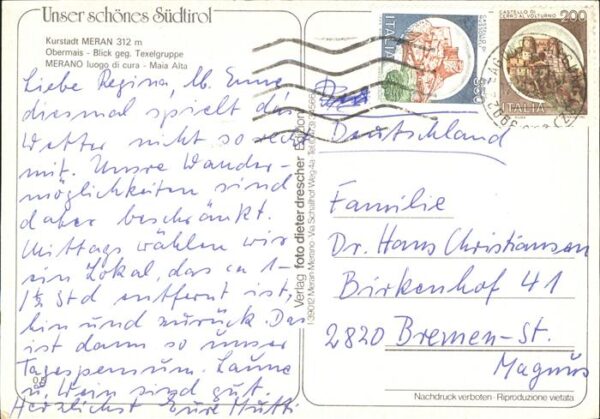 Unser schönes Südtirol
Kurstadt MERAN 312 m
Obermais - Blick geg. Texelgruppe
MERANO luogo di cura - Maia Alta
Liebe Regina, lb. Enne
diesmal spielt das
Wetter nicht so recht
mit. Unsre Wander-
möglichkeiten sind
daher beschränkt.
Mittags wählen wir
ein Lokal, das ca 1-
1½ Std entfernt ist,
hin und zurück. Das
ist dann so unser
Tagespensum. Laune
u. Wein sind gut.
Herzlichst Eure Mutti
Verlag foto dieter drescher Edizioni
I-39012 Meran Merano - Via Schallhof Weg 4a
ITALIA
200
CASTELLO DI
CERRO AL VOLTURNO
ITALIA
Deutschland
Familie
Dr. Hans Christiansen
Birkenhof 41
2820 Bremen-St.
Magnus
Nachdruck verboten - Riproduzione vietata